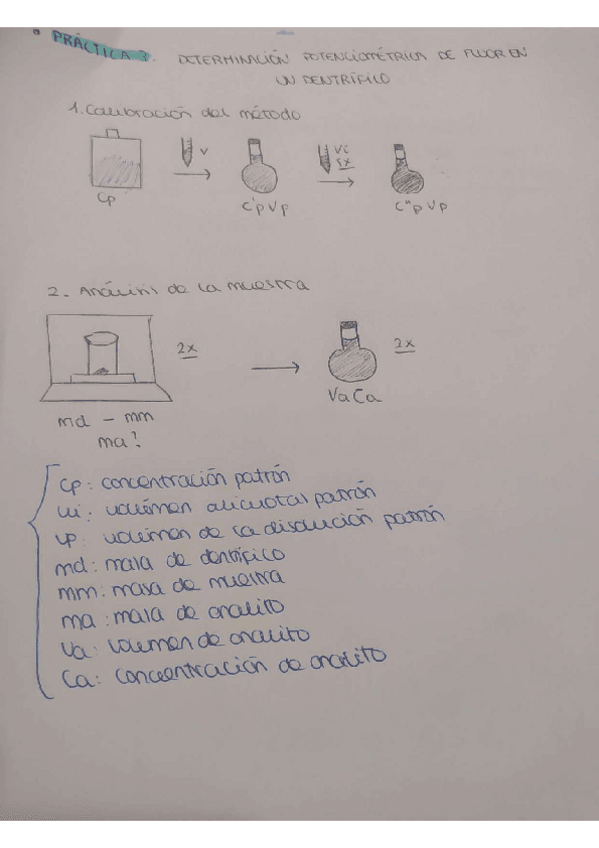 PRÁCTICA 3. DETERMINACIÓN POTENCIOMÉTRICA DE FLUOR EN
UN DENTRÍFICO
1. Calibración del método
V
Vi
5x
Cp
C'p Vp
C"p Vp
2. Análisis de la muestra
2x
2x
Va Ca
md - mm
ma?
Cp: concentración patrón
Vi: volúmen alicuotas patrón
Vp: volúmen de la disolución patrón
md: masa de dentrífico
mm: masa de muestra
ma: masa de analito
Va: volumen de analito
Ca: concentración de analito